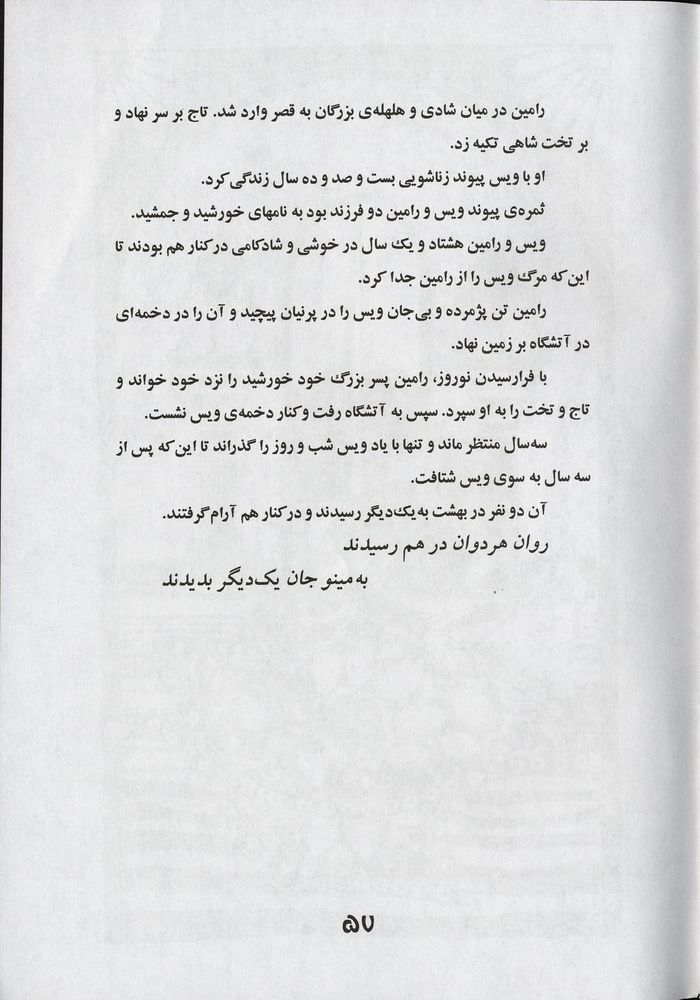 رامین در میان شادی و هلهله‌ی بزرگان به قصر وارد شد. تاج بر سر نهاد و
بر تخت شاهی تکیه زد.
او با ویس پیوند زناشویی بست و صد و ده سال زندگی کرد.
ثمره‌ی پیوند ویس و رامین دو فرزند بود به نامهای خورشید و جمشید.
ویس و رامین هشتاد و یک سال در خوشی و شادکامی در کنار هم بودند تا
این‌که مرگ ویس را از رامین جدا کرد.
رامین تن پژمرده و بی‌جان ویس را در پرنیان پیچید و آن را در دخمه‌ای
در آتشگاه بر زمین نهاد.
با فرارسیدن نوروز، رامین پسر بزرگ خود خورشید را نزد خود خواند و
تاج و تخت را به او سپرد. سپس به آتشگاه رفت و کنار دخمه‌ی ویس نشست.
سه‌سال منتظر ماند و تنها با یاد ویس شب و روز را گذراند تا این‌که پس از
سه سال به سوی ویس شتافت.
آن دو نفر در بهشت به یک‌دیگر رسیدند و در کنار هم آرام گرفتند.
روان هردوان در هم رسیدند
به مینو جان یک‌دیگر بدیدند
۵۷